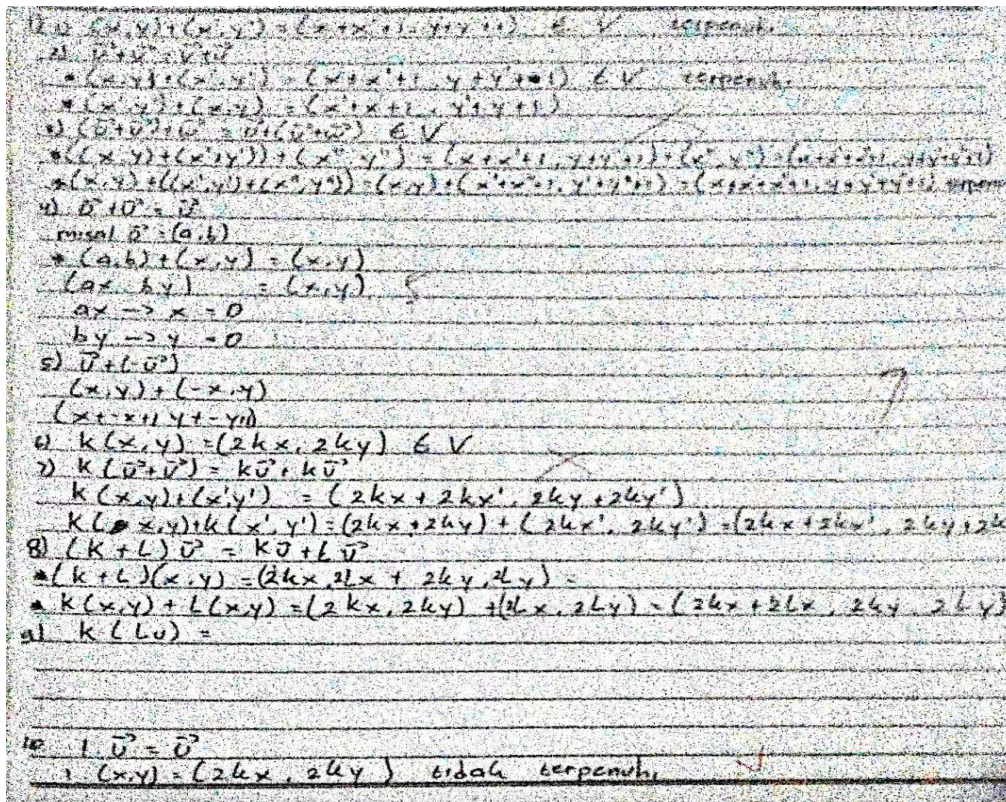 1) (x,y)+(x',y') = (x+x'+1, y+y'+1) ∈ V terpenuhi
2) u⃗+v⃗ = v⃗+u⃗
* (x,y)+(x',y') = (x+x'+1, y+y'+1) ∈ V terpenuhi
* (x',y')+(x,y) = (x'+x+1, y'+y+1)
3) (u⃗+v⃗)+w⃗ = u+(v⃗+w⃗) ∈ V
* ((x,y)+(x',y'))+(x",y") = (x+x'+1, y+y'+1)+(x",y") =
* (x,y)+((x',y')+(x",y")) = (x,y)+(x'+x"+1, y'+y"+1) =
4) 0⃗+u⃗ = u⃗
misal 0⃗ = (a,b)
* (a,b)+(x,y) = (x,y)
(ax, by) = (x,y) 5
ax -> x = 0
by -> y = 0
5) u⃗+(-u⃗)
(x,y)+(-x,-y)
(x+-x+1, y+-y+1)
6) k(x,y) = (2kx, 2ky) ∈ V
7) k(u⃗+v⃗) = ku⃗+kv⃗
k(x,y)+(x'y') = (2kx+2kx', 2ky+2ky')
k(x,y)+k(x',y') = (2kx+2ky)+(2kx', 2ky') = (2kx+2kx', 2ky+2k
8) (k+L)u⃗ = ku⃗+Lu⃗
* (k+L)(x,y) = (2kx, 2Lx + 2ky, 2Ly) =
* k(x,y)+L(x,y) = (2kx, 2ky)+(2Lx, 2Ly) = (2kx+2Lx, 2ky, 2Ly)
9) k(Lu) =
10 1.u⃗ = u⃗
1 (x,y) = (2kx, 2ky) tidak terpenuhi